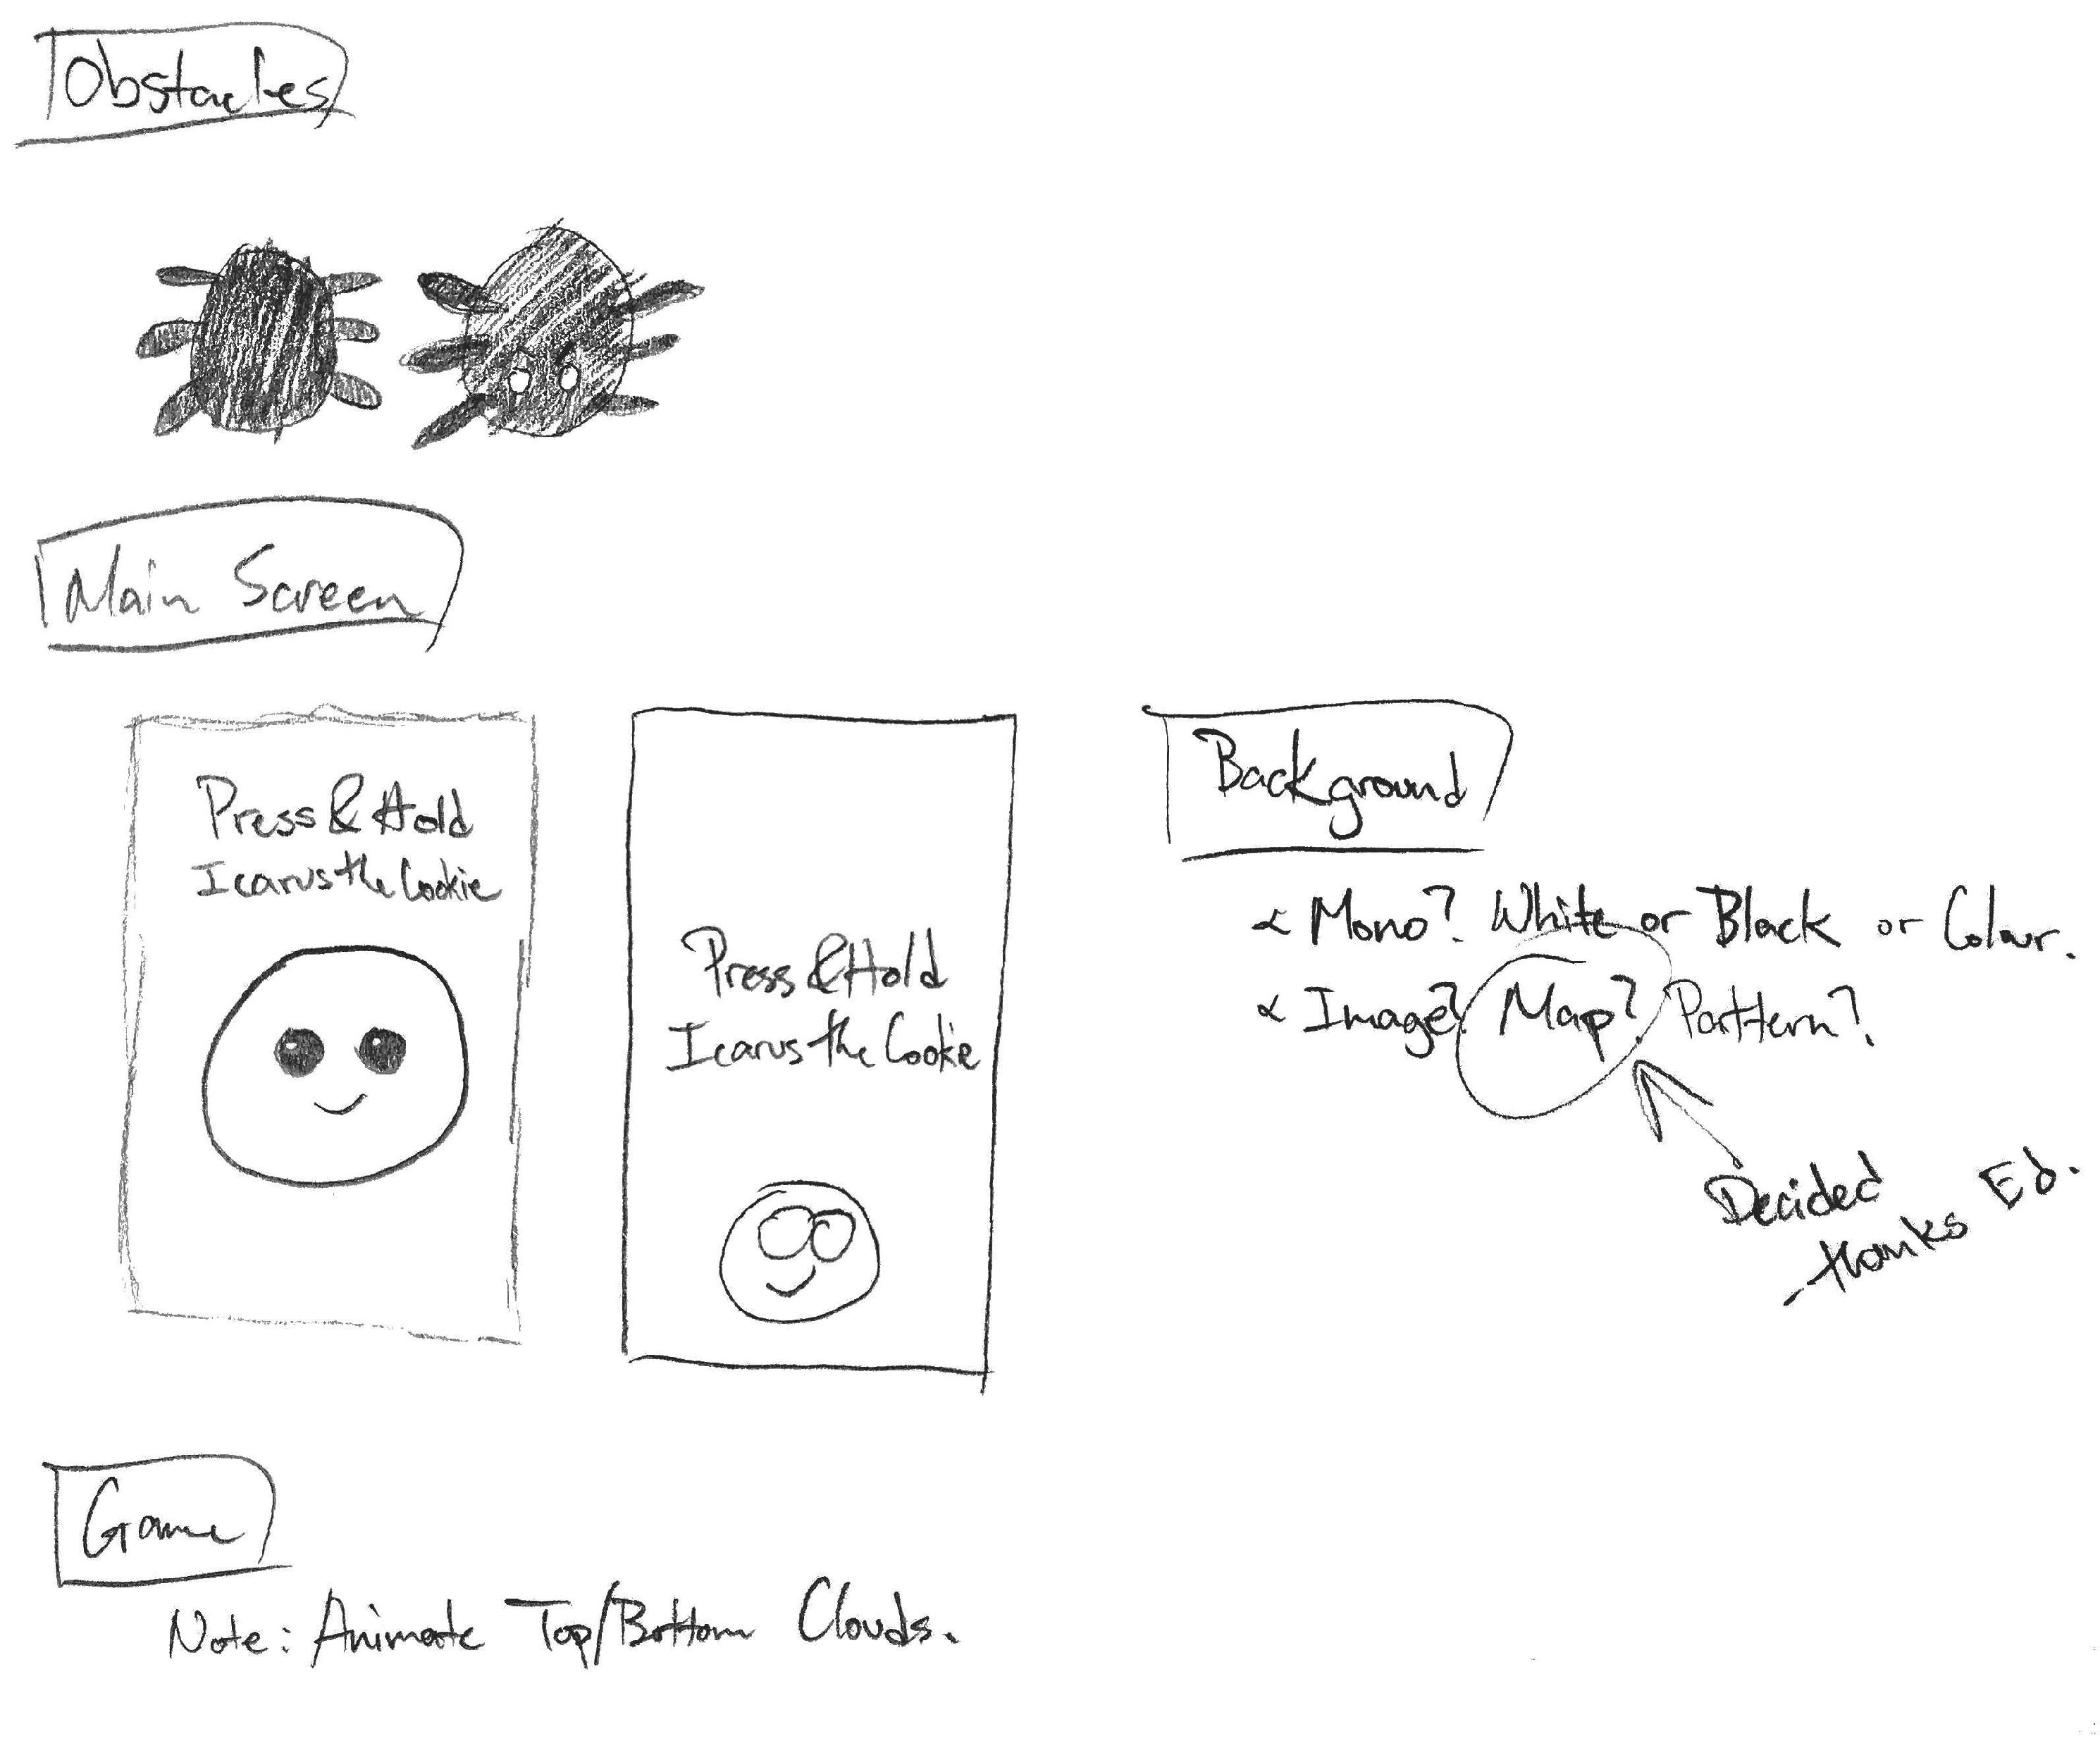 Obstacles
Main Screen
Press & Hold
Icarus the Cookie
Press & Hold
Icarus the Cookie
Background
∝ Mono? White or Black or Colour.
∝ Image? Map? Parttern?
Decided
- thanks Ed.
Game
Note: Animate Top/Bottom Clouds.